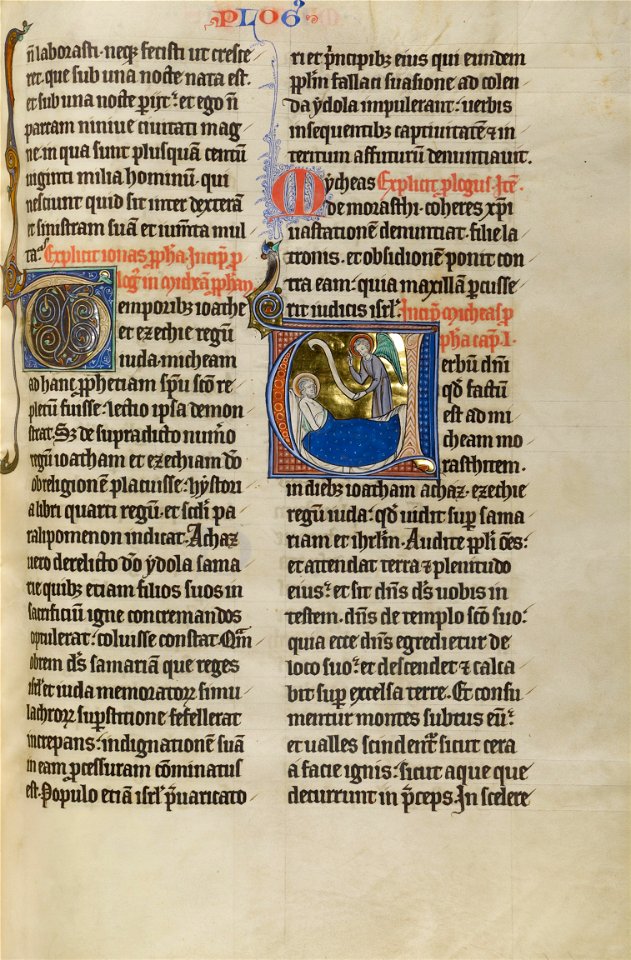 PLOG᷒
n̄ laborasti· neqꝫ fecisti ut cresce
ret· que sub una nocte nata est·
et sub una nocte perijt· et ego n̄
parcam niniue ciuitati mag
ne· in qua sunt plusquā centū
uiginti milia hominū· qui
nesciunt quid sit inter dexterā
et sinistram suā et iumēta mul
ta· Explicit ionas ꝓpha· Incip̄ p
log᷒ in mycheā ꝓphan
Temporibꝫ ioathe
et ezechie regū
iuda· micheam
ad hanc ꝓphetiam spū scō re
pletū fuisse· lectio ipsa demon
strat· Sꝫ de supradicto num̄o
regū ioatham et ezechiam dō
ob religionē placuisse· hystori
a libri quarti regū· et scd̄i pa
ralipomenon indicat· Achaz
uero derelicto dō ydola sama
rie quibꝫ etiam filios suos in
sacrificiū igne concremandos
optulerat· coluisse constat· Qm̄
obrem dʼs samariām que reges
isrʼl et iuda memoratoꝝ simu
lachroꝝ suꝑstitione fefellerat
increpans· indignationē suā
in eam ꝓcessuram cōminatus
est· Populo etiā isrʼl p̄uaricato
ri et p̄ncipibꝫ eius qui eundem
ppl̄m fallaci suasione ad colen
da ydola impulerant· uerbis
insequentibꝫ captiuitatē ⁊ in
teritum affuturū denuntiauit.
Mycheas Explicit ꝓlogus· Itē·
de morasthi· coheres xp̄i
uastationē denunciat· filie la
tronis· et obsidionem ponit con
tra eam· quia maxillā percusse
rit iudicis isrʼl· Incip̄ mycheas ꝓ
pha cap̄· I·
Verbū dn̄i
qd̄ factū
est ad mi
cheam mo
rasthitem·
in diebꝫ ioatham achaz· ezechie
regū iuda· qd̄ uidit suꝑ sama
riam et ihrlm̄· Audite ppl̄i ōēs·
et attendat terra ⁊ plenitudo
eius· et sit dn̄s dʼs uobis in
testem· dn̄s de templo scō suo·
quia ecce dn̄s egredietur de
loco suo· et descendet ⁊ calca
bit suꝑ excelsa terre· Et consu
mentur montes subtus eū·
et ualles scindentʼ sicut cera
a facie ignis· sicut aque que
decurrunt in p̄ceps· In scelere